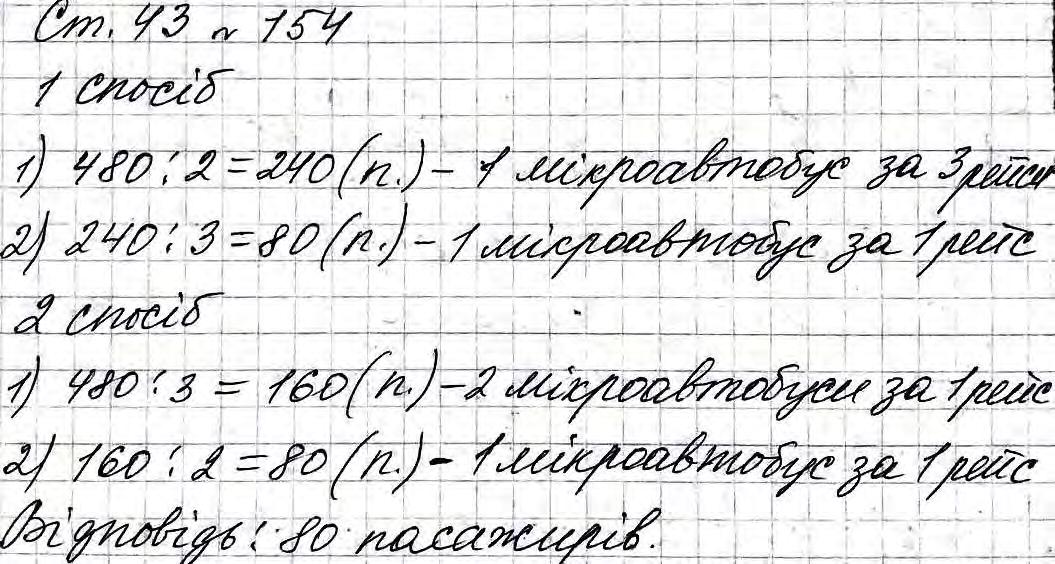 Ст. 43 № 154
1 спосіб
1) 480 : 2 = 240 (п.) – 1 мікроавтобус за 3 рейси
2) 240 : 3 = 80 (п.) – 1 мікроавтобус за 1 рейс
2 спосіб
1) 480 : 3 = 160 (п.) – 2 мікроавтобуси за 1 рейс
2) 160 : 2 = 80 (п.) – 1 мікроавтобус за 1 рейс
Відповідь : 80 пасажирів.